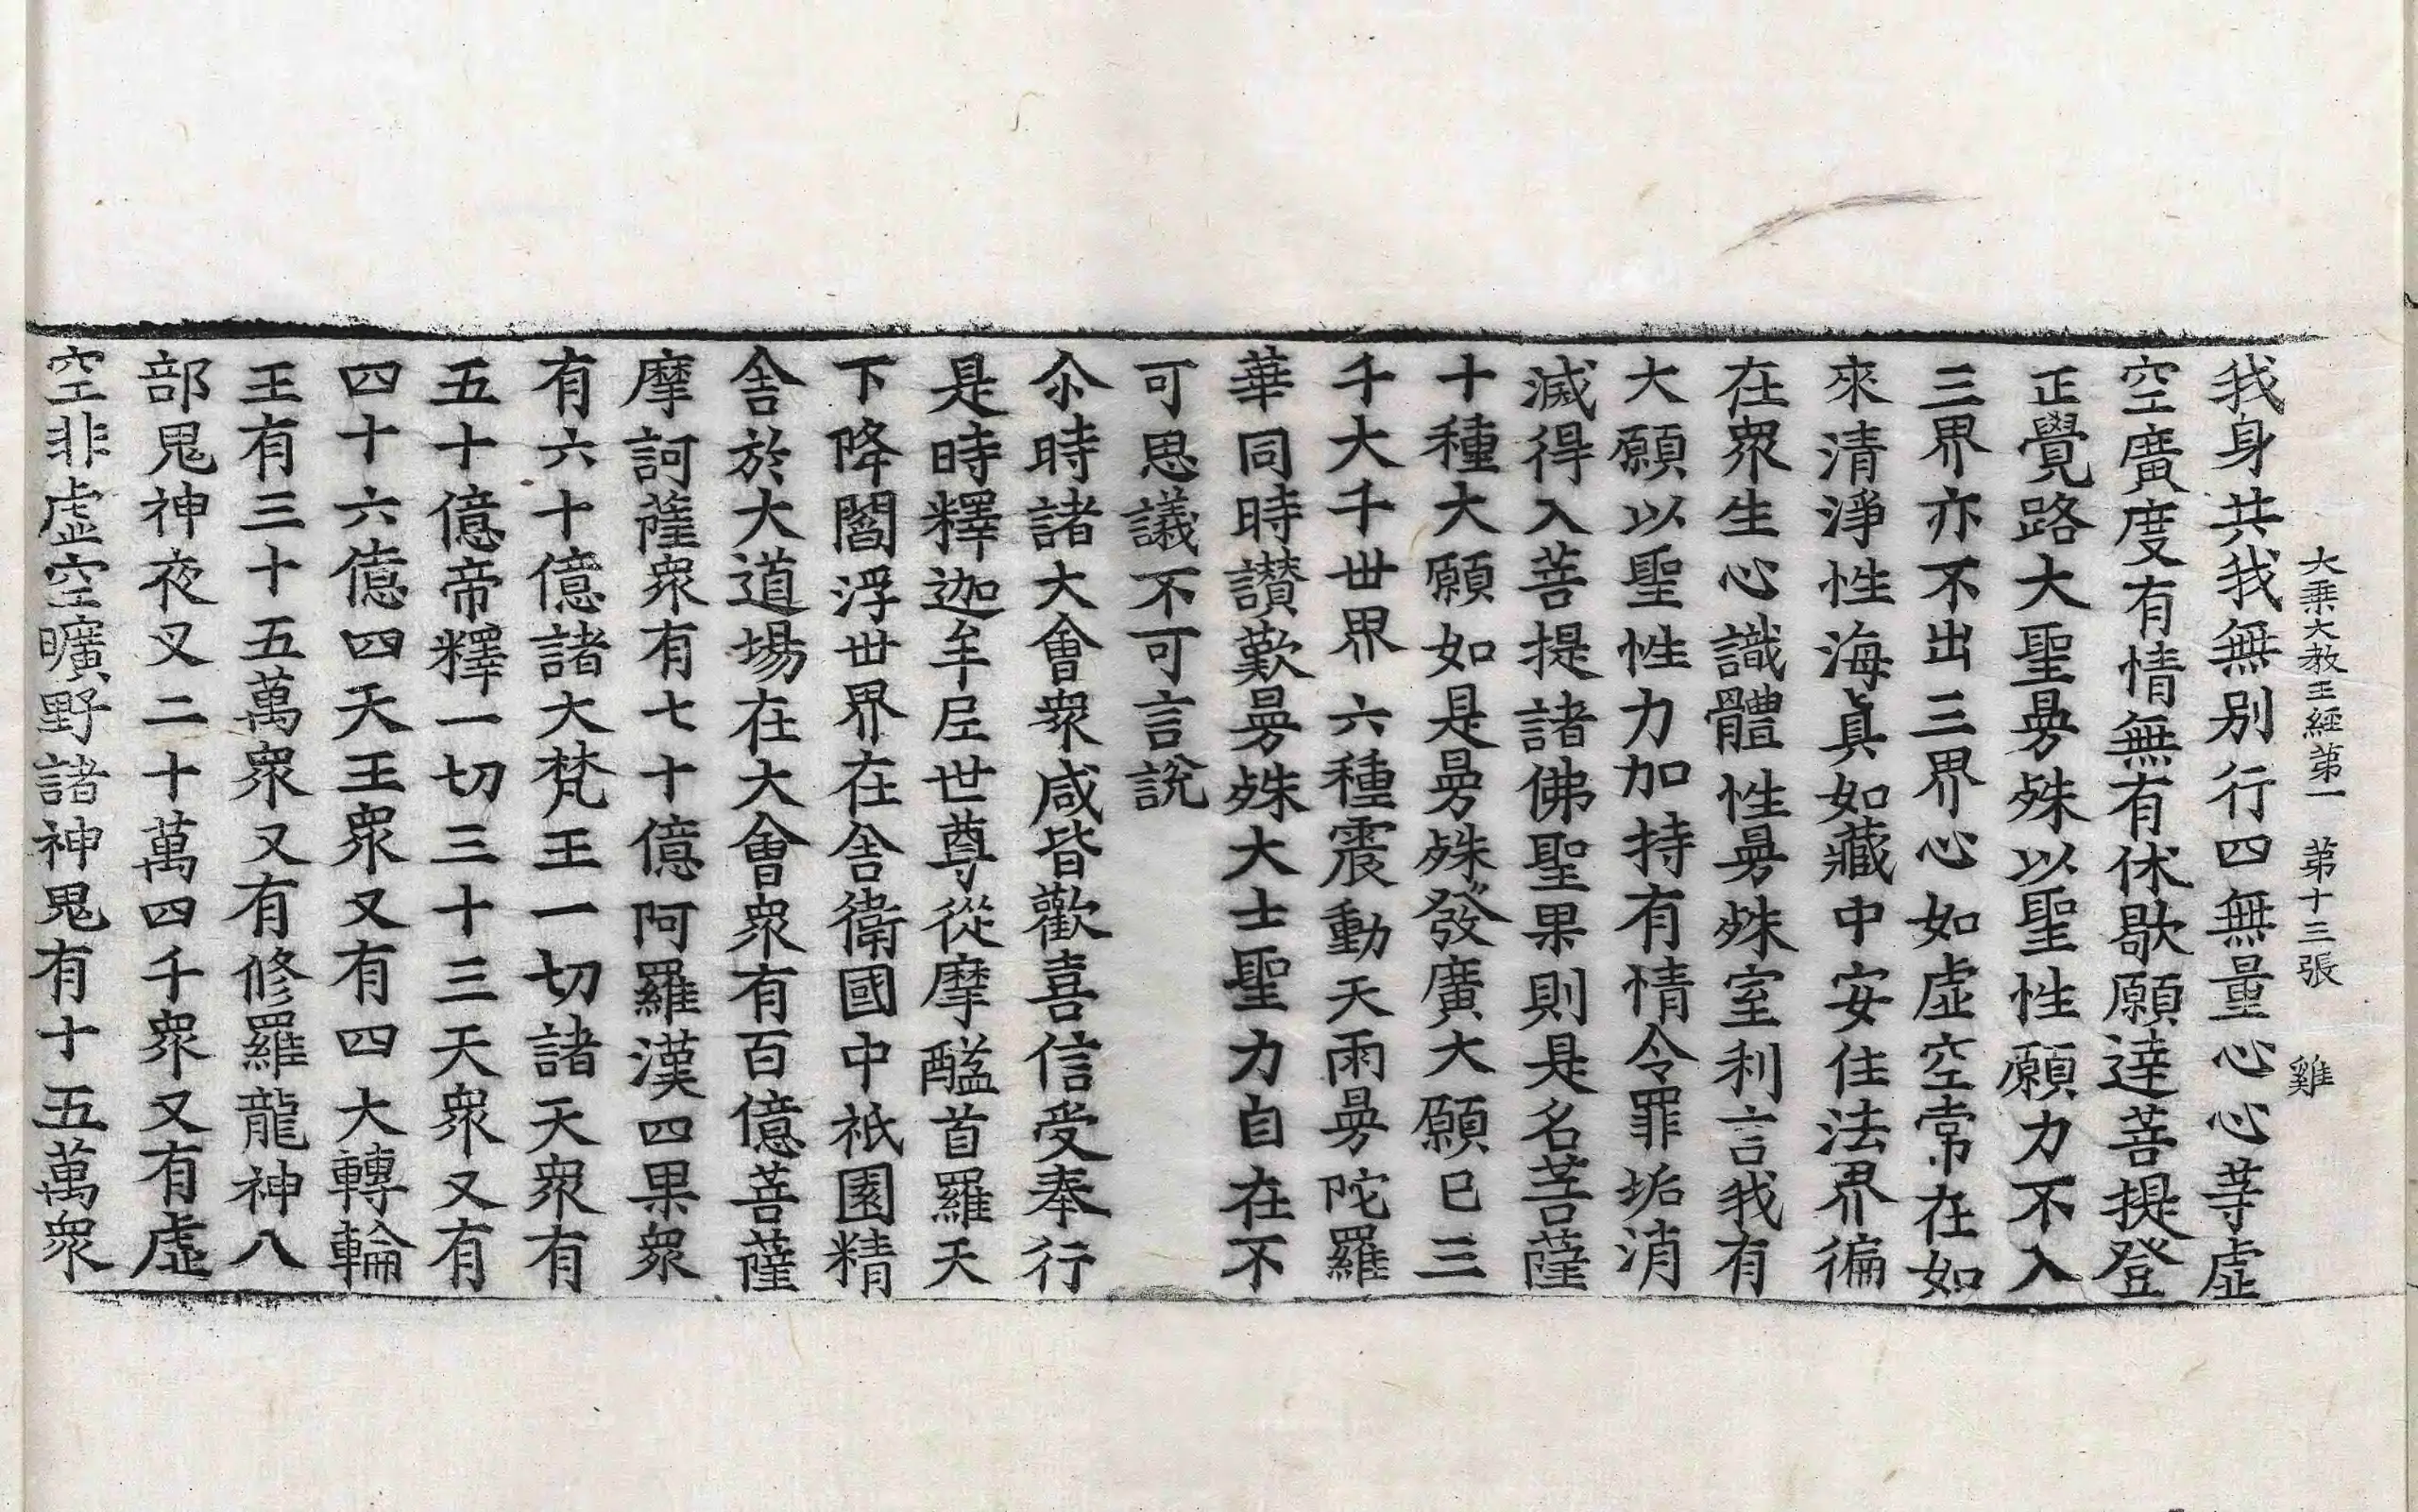 大乗大教王經第一　第十三張　雞
我身共我無別行四無量心心等虛
空廣度有情無有休歇願達菩提登
正覺路大聖曼殊以聖性願力不入
三界亦不出三界心如虛空常在如
來清淨性海真如藏中安住法界徧
在眾生心識體性曼殊室利言我有
大願以聖性力加持有情令罪垢消
滅得入菩提諸佛聖果則是名菩薩
十種大願如是曼殊發廣大願已三
千大千世界六種震動天雨曼陀羅
華同時讃歎曼殊大士聖力自在不
可思議不可言說
尒時諸大會眾咸皆歡喜信受奉行
是時釋迦牟尼世尊從摩醯首羅天
下降閻浮世界在舍衛國中祇園精
舍於大道場在大會眾有百億菩薩
摩訶薩眾有七十億阿羅漢四果眾
有六十億諸大梵王一切諸天眾有
五十億帝釋一切三十三天眾又有
四十六億四天王眾又有四大轉輪
王有三十五萬眾又有修羅龍神八
部鬼神夜叉二十萬四千眾又有虛
空非虛空曠野諸神鬼有十五萬眾